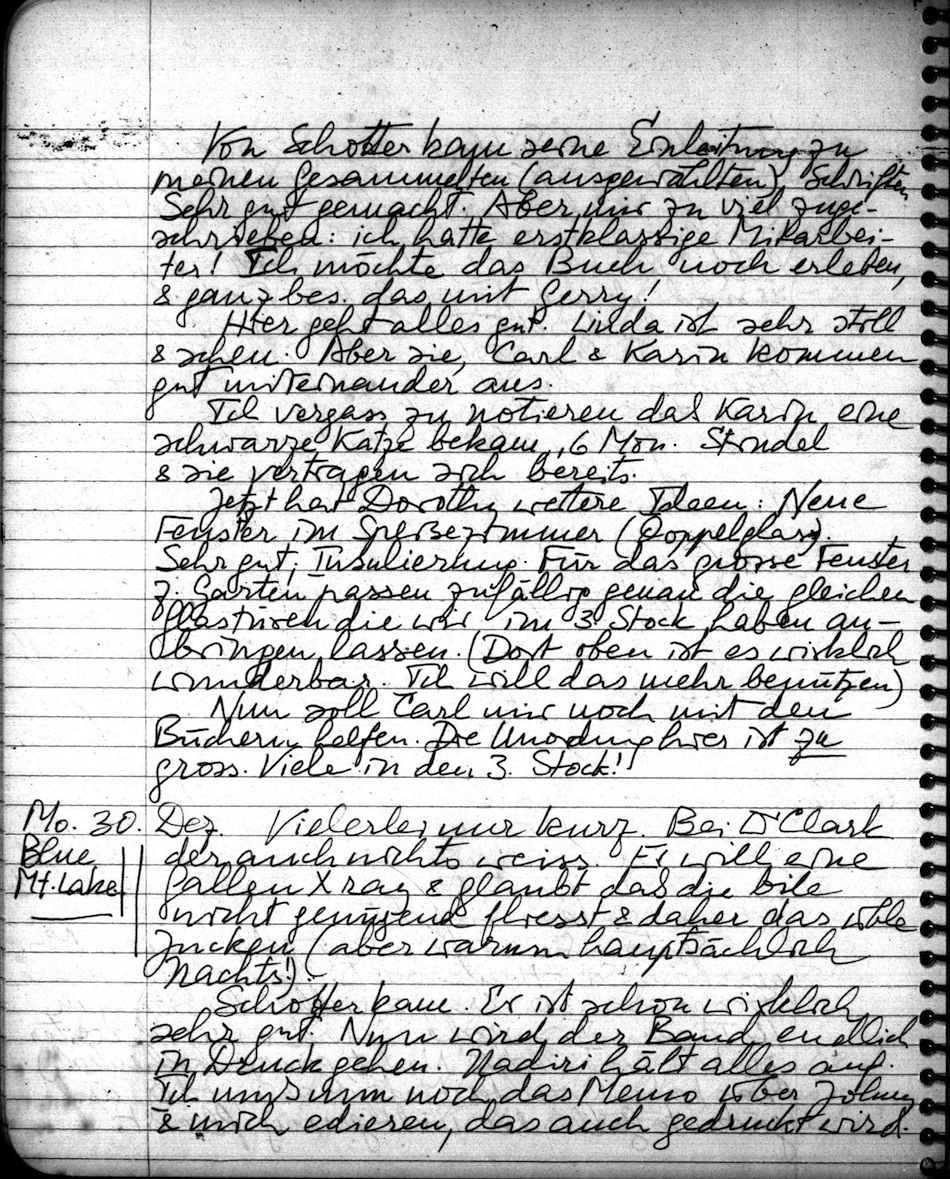 Von Schotter kam seine Einleitung zu
meinen gesammelten (ausgewählten) Schriften
Sehr gut gemacht. Aber mir zu viel zuge-
schrieben: ich hatte erstklassige Mitarbei-
ter! Ich möchte das Buch noch erleben,
& ganz bes. das mit Gerry!
Hier geht alles gut. Linda ist sehr still
& scheu. Aber sie, Carl & Karin kommen
gut miteinander aus.
Ich vergass zu notieren das Karin eine
schwarze Katze bekam, 6 Mon. Strudel
& sie vertragen sich bereits.
Jetzt hat Dorothy weitere Ideen: Neue
Fenster im Speisezimmer (Doppelglas).
Sehr gut, Insulierung. Für das grosse Fenster
z. Garten passen zufällig genau die gleichen
Glastüren die wir im 3 Stock haben an-
bringen lassen. (Dort oben ist es wirklich
wunderbar. Ich will das mehr benützen)
Nun soll Carl mir noch mit den
Büchern helfen. Die Unordnung hier ist zu
gross. Viele in den 3. Stock!
Mo. 30. Dez. Vielerlei nur kurz. Bei Dr Clark
Blue der auch nichts weiss. Er will eine
Mt. Lake Gallen X ray & glaubt das die bile
nicht genügend fliesst & daher das üble
Jucken (aber warum hauptsächlich
Nachts!)
Schotter kam. Er ist schon wirklich
sehr gut. Nun wird der Band endlich
in Druck gehen. Nadiri hält alles auf.
Ich muß nun noch das Memo über Johnny
& mich edieren, das auch gedruckt wird.